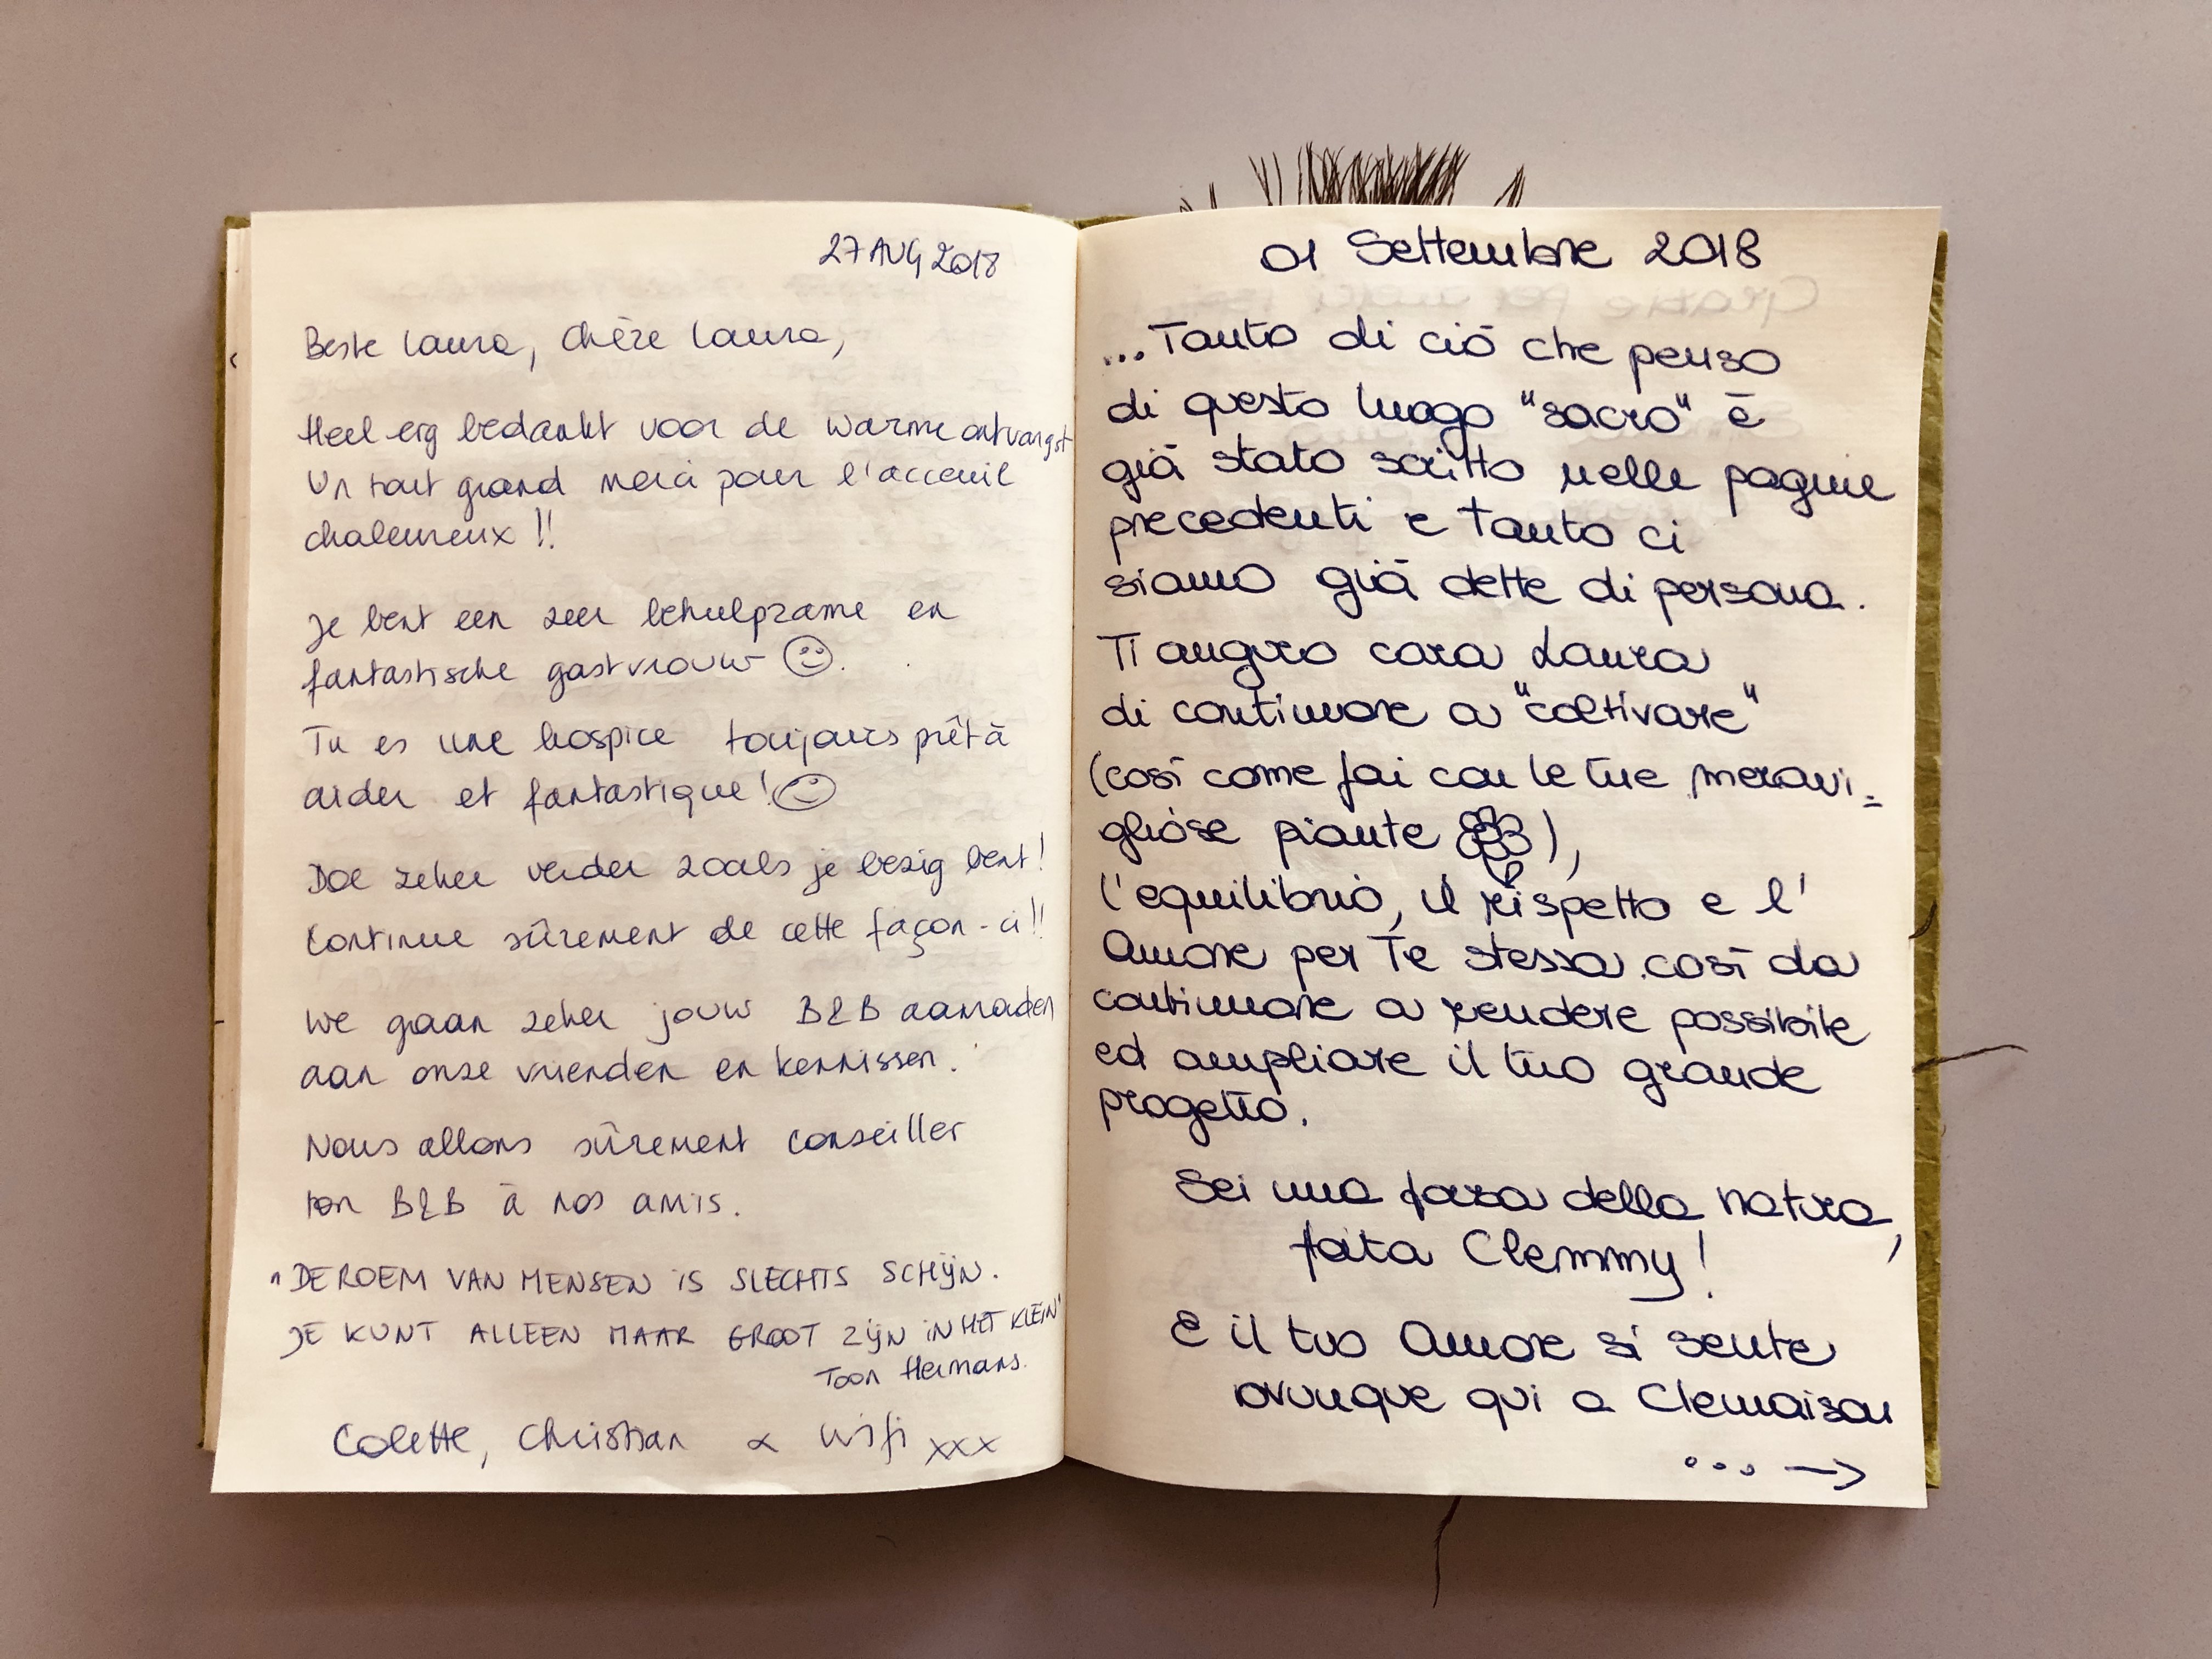 27 AUG 2018
Beste Laura, Chère Laura,
Heel erg bedankt voor de warme ontvangst
Un tout grand merci pour l'acceuil
chaleureux !!
Je bent een zeer behulpzame en
fantastische gastvrouw ☺.
Tu es une hospice toujours prêt à
aider et fantastique! ☺
Doe zeker verder zoals je bezig bent!
Continue sûrement de cette façon-ci!!
We gaan zeker jouw B&B aanraden
aan onze vrienden en kennissen.
Nous allons sûrement conseiller
ton B&B à nos amis.
"DE ROEM VAN MENSEN IS SLECHTS SCHIJN.
JE KUNT ALLEEN MAAR GROOT ZIJN IN HET KLEIN"
Toon Hermans.
Colette, Christian & Wifi xxx
01 Settembre 2018
...Tanto di ciò che penso
di questo luogo "sacro" è
già stato scritto nelle pagine
precedenti e tanto ci
siamo già dette di persona.
Ti auguro cara Laura
di continuare a "coltivare"
(così come fai con le tue meravi=
gliose piante),
l'equilibrio, il rispetto e l'
Amore per Te stessa così da
continuare a rendere possibile
ed ampliare il tuo grande
progetto.
Sei una forza della natura,
fata Clemmy!
E il tuo Amore si sente
ovunque qui a Clemaison
... →